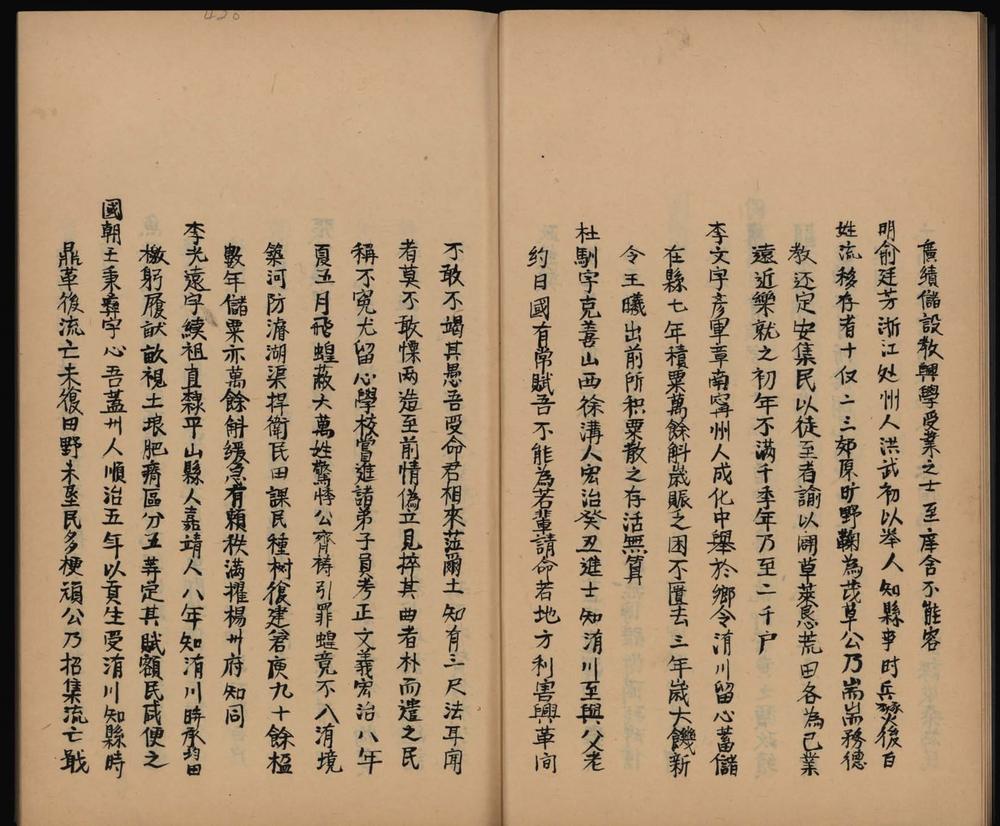 廣績儲設教興學受業之士至庠舍不能容
明俞廷芳浙江处州人洪武初以举人知縣事时兵燹後百
姓流移存者十仅二三郊原旷野鞠為茂草公乃耑耑務德
教还定安集民以徒至者諭以闢草萊悬荒田各為己業
遠近樂就之初年不满千季年乃至二千户
李文字彥軍章南寜州人成化中舉於鄉令洧川留心蓄儲
在縣七年積粟萬餘斛歲賑之困不匱去三年歲大饑新
令王曦出前所积粟散之存活無算
杜馴字克善山西徐溝人宏治癸丑進士知洧川至與父老
約日國有常賦吾不能為若輩請命若地方利害興革间
不敢不竭其愚吾受命君相來蒞爾土知有三尺法耳间
者莫不敢慄两造至前情偽立見捽其曲者朴而遣之民
稱不寃尤留心學校嘗進諸弟子員考正文義宏治八年
夏五月飛蝗蔽大萬姓驚悸公齊祷引罪蝗竟不入洧境
築河防濬湖渠捍衛民田課民種树復建倉庾九十餘楹
數年儲粟亦萬餘斛缓急有賴秩满擢楊州府知同
李光遠字續祖直隸平山縣人嘉靖人八年知洧川時承均田
檄躬履畎畝視土琅肥瘠區分五等定其賦額民咸便之
國朝王秉彝字心吾蓋州人順治五年以貢生受洧川知縣時
鼎革後流亡未復田野未垦民多梗頑公乃招集流亡戢
420